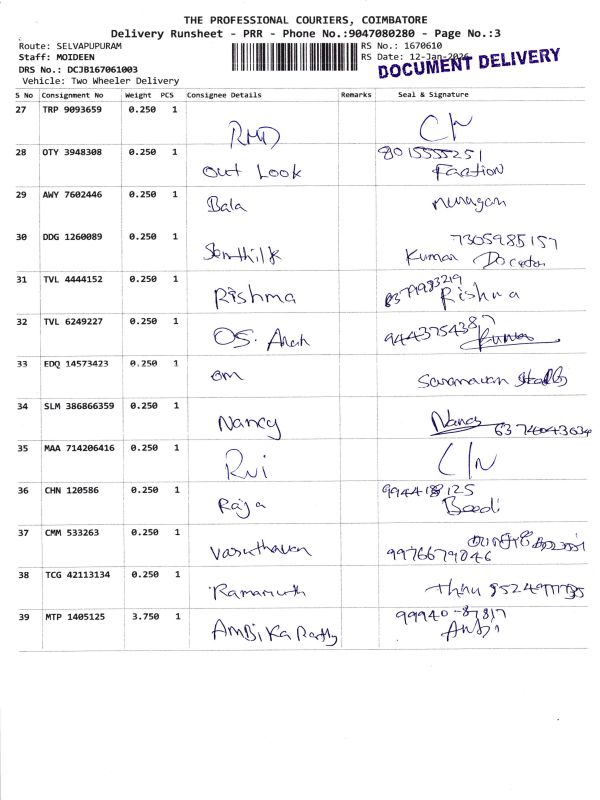 THE PROFESSIONAL COURIERS, COIMBATORE
Delivery Runsheet - PRR - Phone No.:9047080280 - Page No.:3
Route: SELVAPUPURAM RS No.: 1670610
Staff: MOIDEEN RS Date: 12-Jan-2026
DOCUMENT DELIVERY
DRS No.: DCJB167061003
Vehicle: Two Wheeler Delivery
S No Consignment No Weight PCS Consignee Details Remarks Seal & Signature
27 TRP 9093659 0.250 1
RMD C/N
28 OTY 3948308 0.250 1 8015555251
Out Look
29 AWY 7602446 0.250 1
Bala murugan
30 DDG 1260089 0.250 1 7305985157
Kumar
31 TVL 4444152 0.250 1 6379983219
Rishma Rishma
32 TVL 6249227 0.250 1 9443754387
OS.
33 EDQ 14573423 0.250 1
om Saravanan
34 SLM 386866359 0.250 1
Nancy Nancy 6374043634
35 MAA 714206416 0.250 1
C/N
36 CHN 120586 0.250 1
Raja
37 CMM 533263 0.250 1
9976679046
38 TCG 42113134 0.250 1
39 MTP 1405125 3.750 1 99940-87817
Ambika